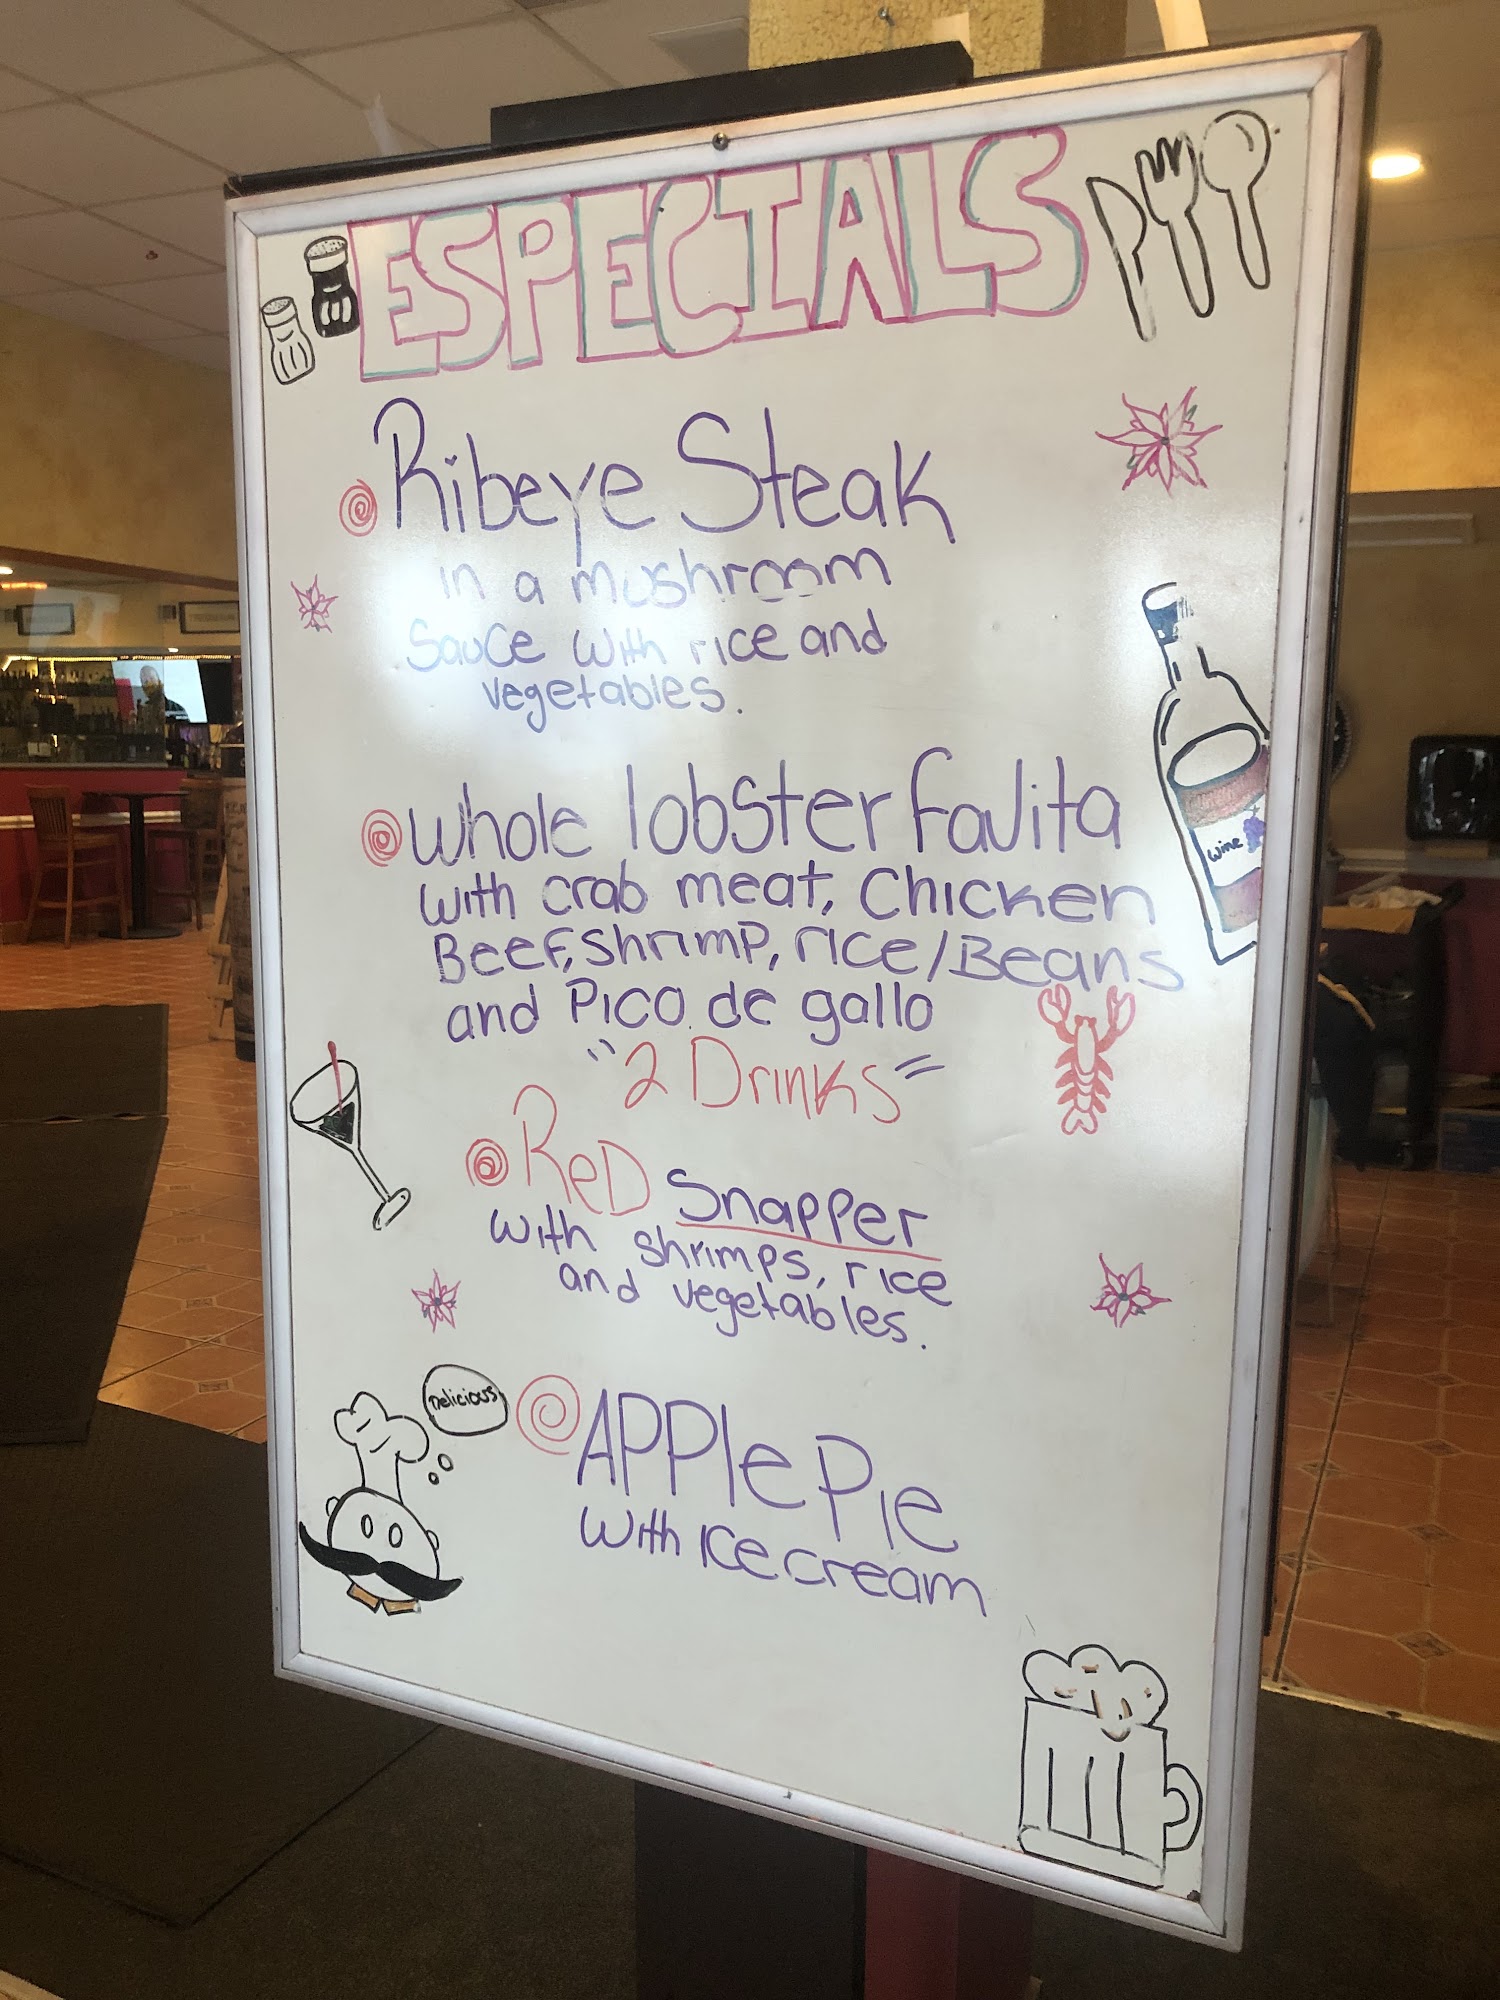 ESPECIALS
Ribeye Steak
in a mushroom
Sauce with rice and
vegetables.
whole lobster faJita
with crab meat, Chicken
Beef, shrimp, rice/Beans
and Pico de gallo
"2 Drinks"
ReD Snapper
with shrimps, rice
and vegetables.
Delicious
APPle Pie
with Ice cream
wine